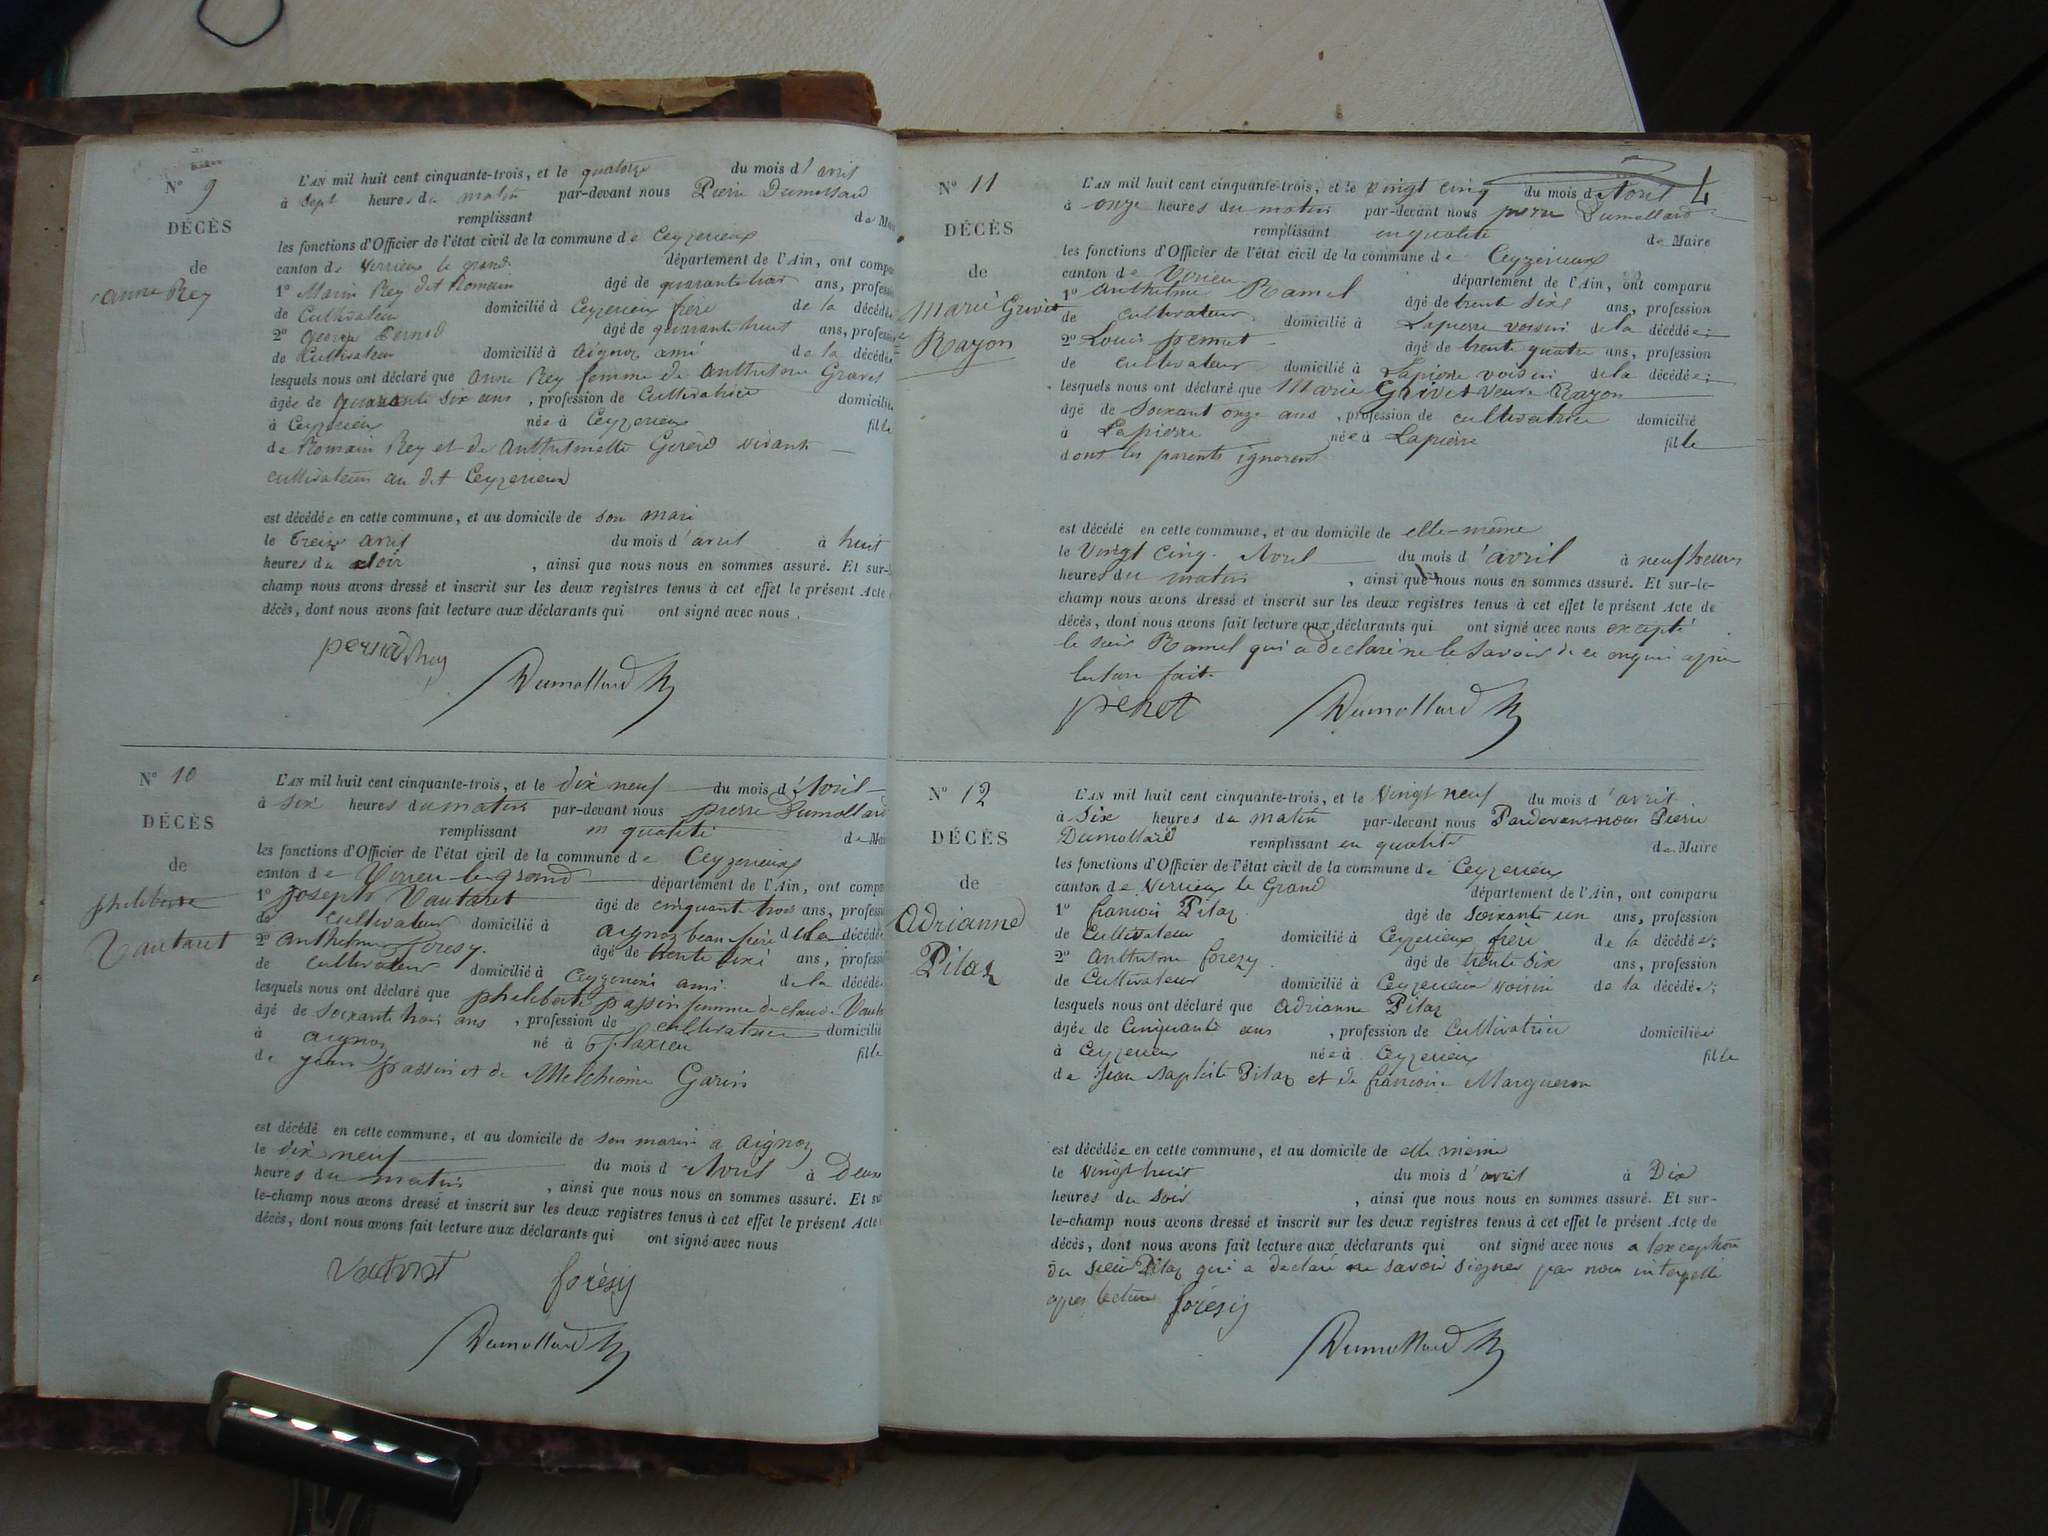 N° 9
DÉCÈS
de
anne Rey
L'AN mil huit cent cinquante-trois, et le quatorze du mois d'avril
à sept heures du matin par-devant nous Pierre Dumollard
remplissant de Mai
les fonctions d'Officier de l'état civil de la commune de Ceyzerieux
canton de Verrieux le grand département de l'Ain, ont compa
1° Marin Rey dit Romain âgé de quarante trois ans, profession
de Cultivateur domicilié à Ceyzerieux frère de la décédée
2° George âgé de quarante huit ans, profession
de Cultivateur domicilié à aignoz ami de la décédée
lesquels nous ont déclaré que anne Rey femme de Anthelme Gravet
âgée de quarante six ans, profession de Cultivatrice domicilié
à Ceyzerieux née à Ceyzerieux fille
de Romain Rey et de Anthelmette vivants
cultivateurs au dit Ceyzerieux
est décédée en cette commune, et au domicile de son mari
le treize avril du mois d'avril à huit
heures du soir, ainsi que nous nous en sommes assuré. Et sur-
champ nous avons dressé et inscrit sur les deux registres tenus à cet effet le présent Acte
décès, dont nous avons fait lecture aux déclarants qui ont signé avec nous.
Dumollard
N° 10
DÉCÈS
de
philiberte
Vautaret
L'AN mil huit cent cinquante-trois, et le dix neuf du mois d'Avril
à six heures du matin par-devant nous pierre Dumollard
remplissant en qualité de Mai
les fonctions d'Officier de l'état civil de la commune de Ceyzerieux
canton de Virieu-le-grand département de l'Ain, ont compa
1° joseph Vautaret âgé de cinquante trois ans, profession
de cultivateur domicilié à aignoz beau frère de la décédée
2° anthelme foresy âgé de trente six ans, profession
de cultivateur domicilié à Ceyzerieux ami de la décédée
lesquels nous ont déclaré que philiberte passin femme de claude Vaut
âgé de soixante trois ans, profession de cultivatrice domicilié
à aignoz né à flaxieu fille
de jean passin et de Melchionne Garin
est décédé en cette commune, et au domicile de son marin a aignoz
le dix neuf du mois d Avril à Deux
heures du matin, ainsi que nous nous en sommes assuré. Et su
le-champ nous avons dressé et inscrit sur les deux registres tenus à cet effet le présent Acte
décès, dont nous avons fait lecture aux déclarants qui ont signé avec nous
forésy
Dumollard
4
N° 11
DÉCÈS
de
Marie Grivet
Rayon
L'AN mil huit cent cinquante-trois, et le vingt cinq du mois d'Avril
à onze heures du matin par-devant nous pierre Dumollard
remplissant en qualité de Maire
les fonctions d'Officier de l'état civil de la commune de Ceyzerieux
canton de Virieu département de l'Ain, ont comparu
1° anthelme Ramel âgé de trente six ans, profession
de cultivateur domicilié à Lapierre voisin de la décédée;
2° Louis âgé de trente quatre ans, profession
de cultivateur domicilié à Lapierre voisin de la décédée;
lesquels nous ont déclaré que Marie Grivet veuve Rayon
âgé de soixant onze ans, profession de cultivatrice domicilié
à Lapierre née à Lapierre fille
dont les parents ignorent
est décédé en cette commune, et au domicile de elle-même
le vingt cinq Avril du mois d'avril à neuf heures
heures du matin, ainsi que nous nous en sommes assuré. Et sur-le-
champ nous avons dressé et inscrit sur les deux registres tenus à cet effet le présent Acte de
décès, dont nous avons fait lecture aux déclarants qui ont signé avec nous excepté
le sieur Ramel qui a declaré ne le savoir de ce
lecture faite
Dumollard
N° 12
DÉCÈS
de
Adrianne
Pilaz
L'AN mil huit cent cinquante-trois, et le vingt neuf du mois d'avril
à six heures du matin par-devant nous Pardevant nous Pierre
Dumollard remplissant en qualité de Maire
les fonctions d'Officier de l'état civil de la commune de Ceyzerieux
canton de Verrieux le Grand département de l'Ain, ont comparu
1° francois Pilaz âgé de soixante un ans, profession
de Cultivateur domicilié à Ceyzerieux frère de la décédée;
2° Anthelme foresy âgé de trente six ans, profession
de Cultivateur domicilié à Ceyzerieux voisin de la décédée;
lesquels nous ont déclaré que Adrianne Pilaz
âgée de Cinquante ans, profession de Cultivatrice domiciliée
à Ceyzerieux née à Ceyzerieux fille
de Jean Baptiste Pilaz et de francoise Margueron
est décédée en cette commune, et au domicile de elle même
le vingt huit du mois d'avril à Dix
heures du soir, ainsi que nous nous en sommes assuré. Et sur-
le-champ nous avons dressé et inscrit sur les deux registres tenus à cet effet le présent Acte de
décès, dont nous avons fait lecture aux déclarants qui ont signé avec nous a lexception
du sieur Pilaz qui a declaré ne savoir signer par nous interpellé
apres lecture forésy
Dumollard